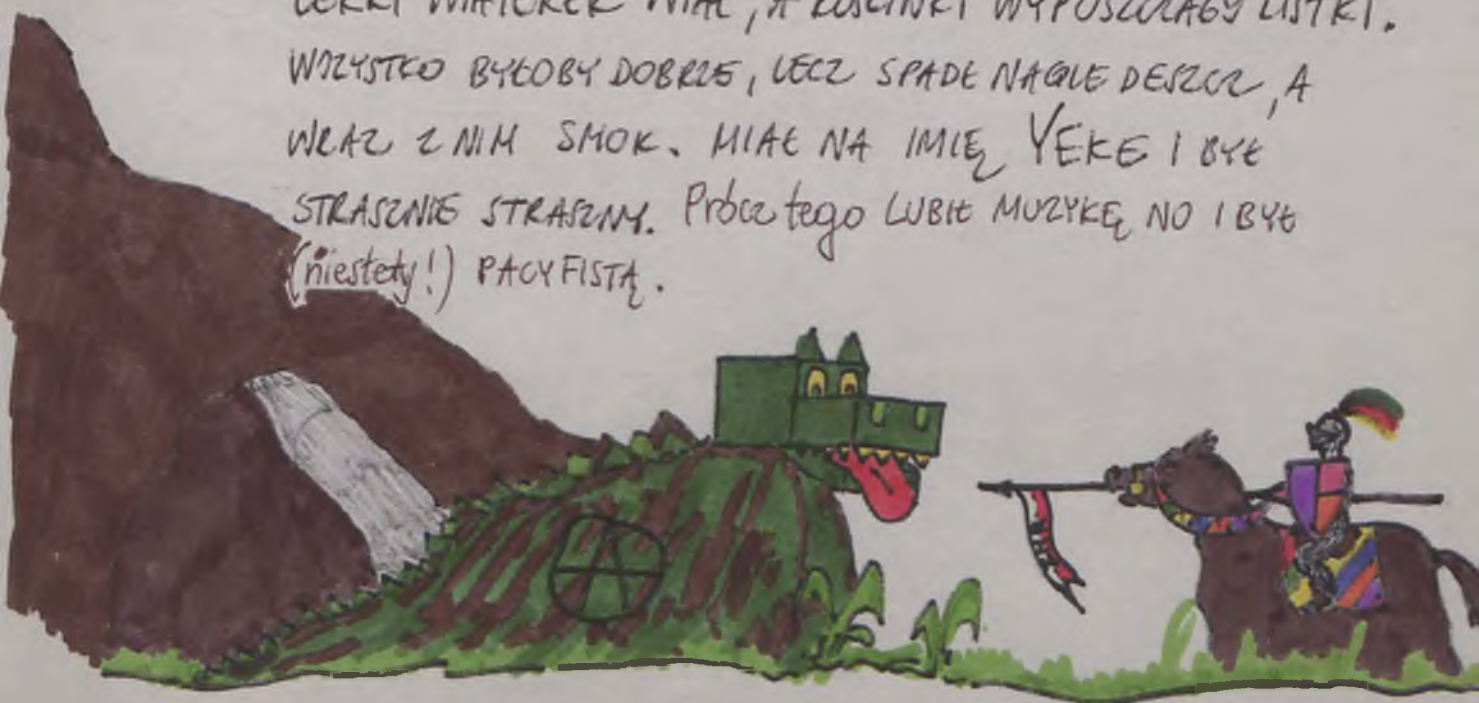 LEKKI WIATEREK WIAŁ, A ROŚLINKI WYPUSZCZAŁY LISTKI.
WSZYSTKO BYŁOBY DOBRZE, LECZ SPADŁ NAGLE DESZCZ, A
WRAZ Z NIM SMOK. MIAŁ NA IMIĘ YEKE I BYŁ
STRASZNIE STRASZNY. Prócz tego LUBIŁ MUZYKĘ NO I BYŁ
(niestety!) PACYFISTĄ.
A